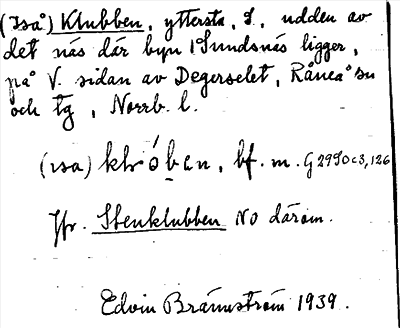 (Iså) Klubben, yttersta, S, udden av
det näs där byn Sundsnäs ligger,
på V. sidan av Degerselet, Råneå sn
och tg, Norrb. l.
(ɪsa) klóbən, bf. m. G 2990c3,126
Jfr. Stenklubben NO därom.
Edvin Brännström 1939.